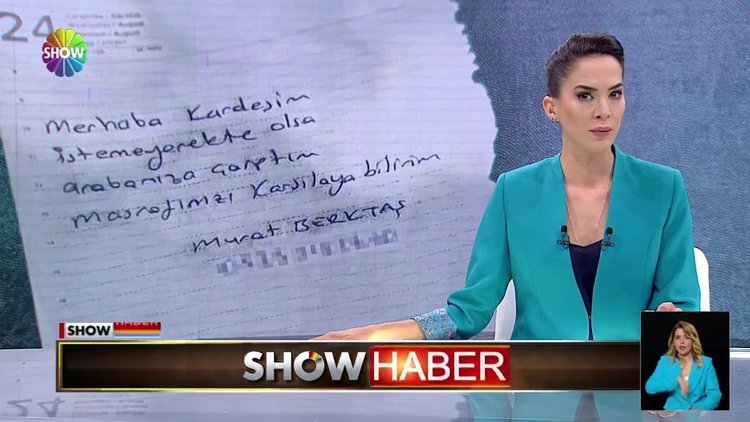 24
SHOW
Merhaba Kardeşim
istemeyerekte olsa
arabanıza çarptım
masrafımızı Karşılaya bilirim
Murat BERKTAŞ
SHOW HABER
SHOW HABER
24